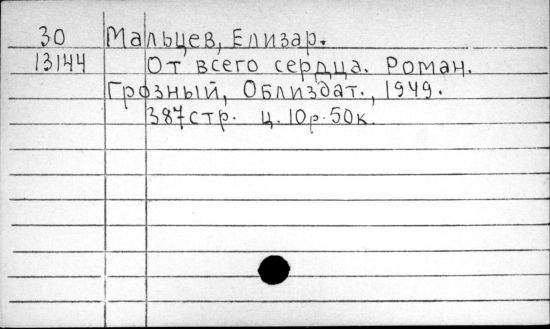 30 Мальцев, Елизар.
13144 От всего сердца. Роман.
Грозный, Облиздат., 1949.
387стр. ц. 10р. 50к.